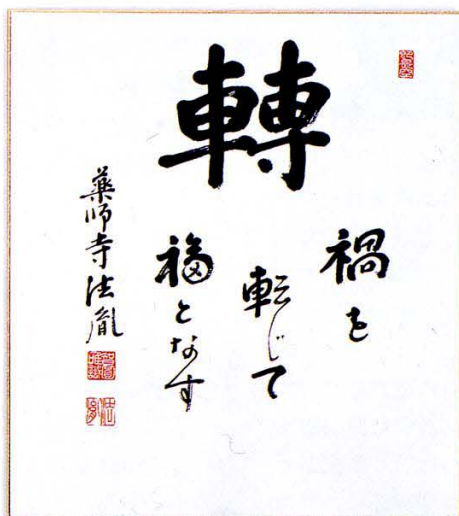 轉
禍を
転じて
福となす
薬師寺法胤